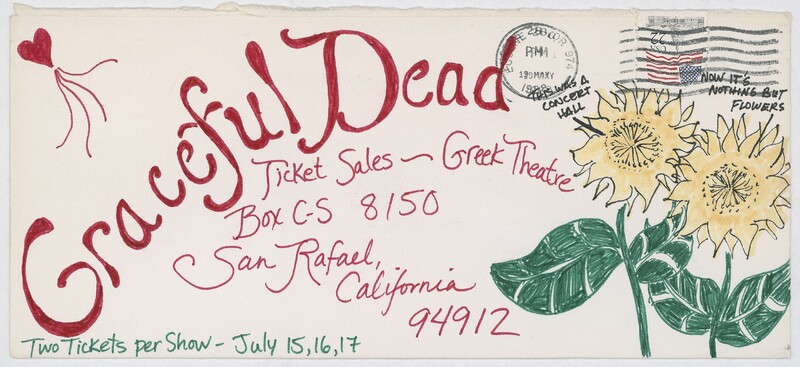 Graceful Dead
Ticket Sales ~ Greek Theatre
Box C-S 8150
San Rafael,
California
94912
Two Tickets per Show - July 15, 16, 17
THIS WAS A
CONCERT
HALL
NOW IT'S
NOTHING BUT
FLOWERS
OR 974
PM
19 MAY
1988
22